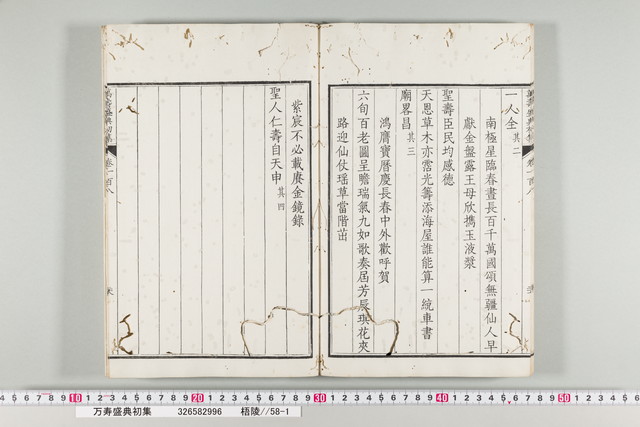 一人全其二
南極星臨春晝長百千萬國頌無疆仙人早
獻金盤露王母欣擕玉液漿
聖壽臣民均感德
天恩草木亦霑光籌添海屋誰能算一統車書
廟畧昌其三
鴻膺寶曆慶長春中外歡呼賀
六旬百老圖呈瞻瑞氣九如歌奏屆芳辰琪花夾
路迎仙仗瑶草當階茁
紫宸不必載賡金鏡錄
聖人仁壽自天申其四
卷一百八
卷一百八
10 20 30 40 50
万寿盛典初集 326582996 梧陵//58-1